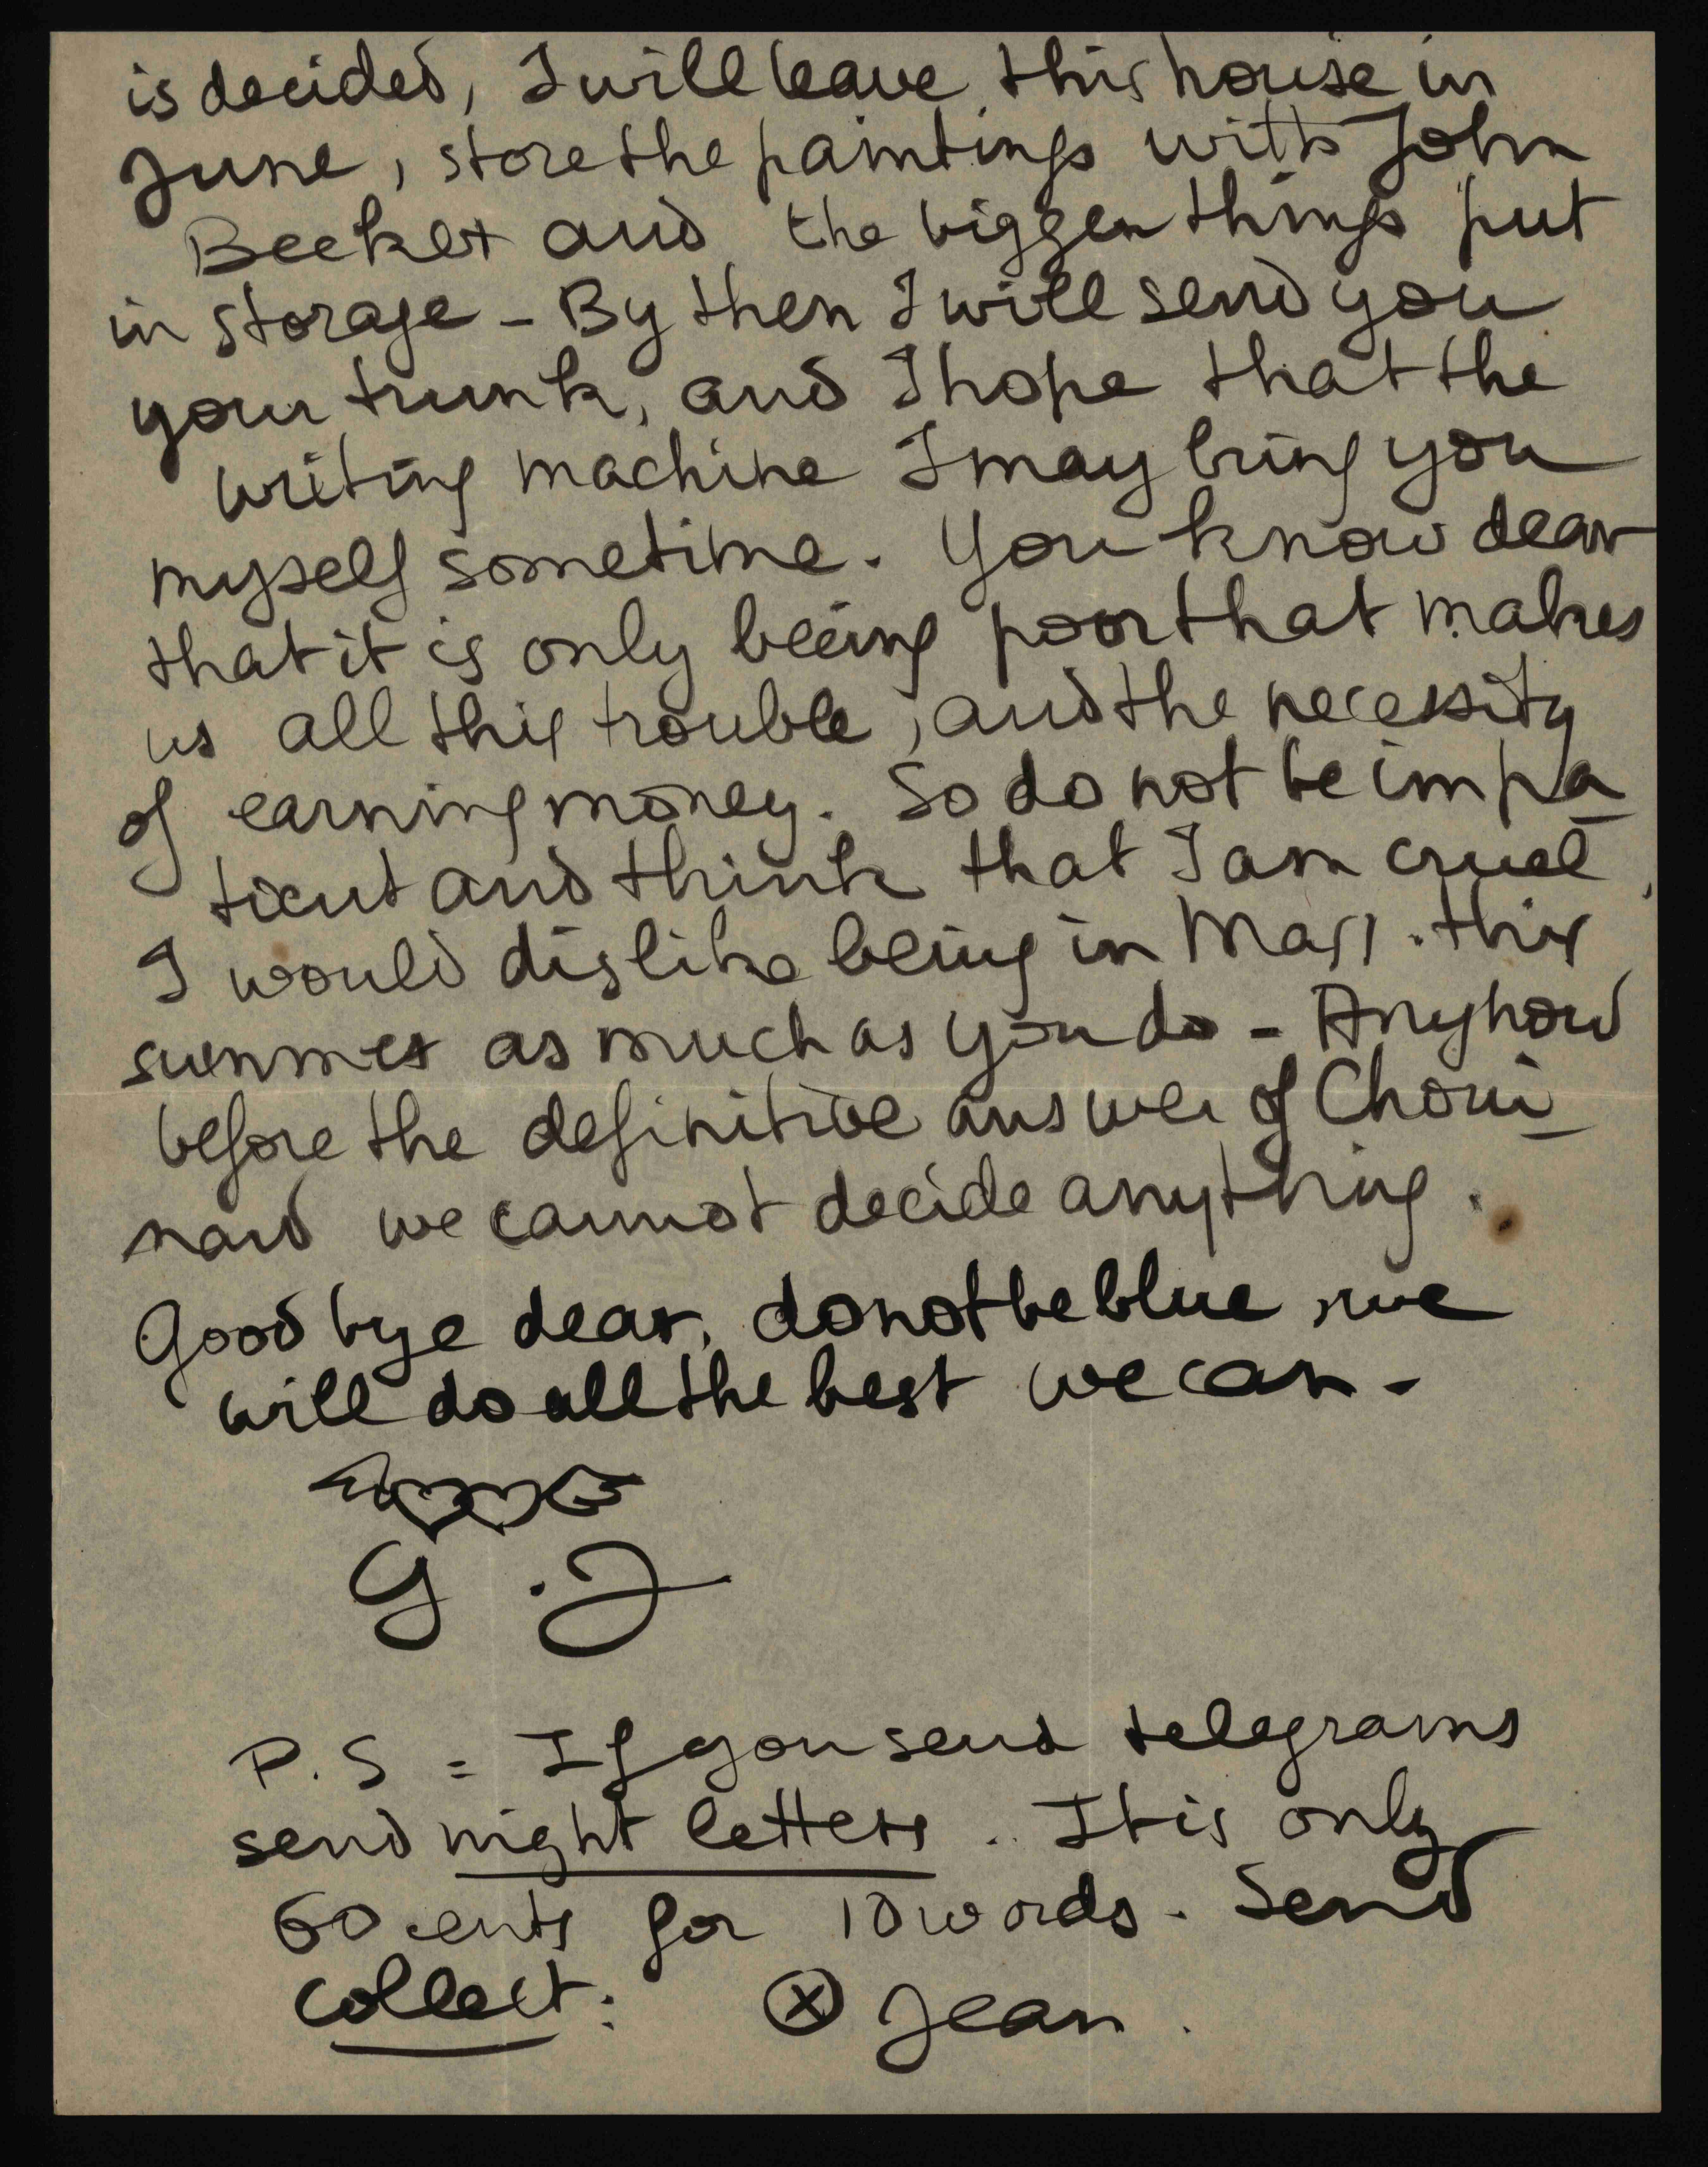 is decided, I will leave this house in
June, store the paintings with John
Becker and the bigger things put
in storage - By then I will send you
your trunk, and I hope that the
writing machine I may bring you
myself sometime. You know dear
that it is only beeing poor that makes
us all this trouble, and the necessity
of earning money. So do not be impa
tient and think that I am cruel,
I would dislike being in Mass. this
summer as much as you do - Anyhow
before the definitive answer of Choui
nard we cannot decide anything.
Good bye dear, do not be blue, we
will do all the best we can -
G. J
P.S = If you send telegrams
send night letters. It is only
60 cents for 10 words. Send
collect: ⓧ Jean.